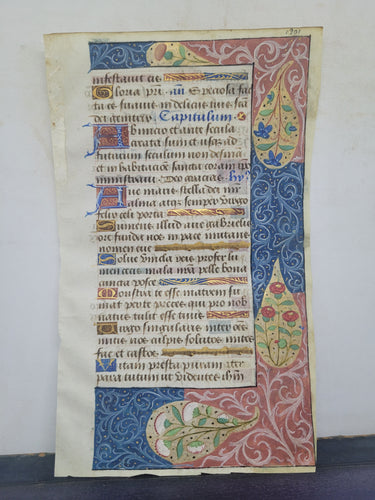 1501
infestavit eis
Gloria pri añ Speciosa fac
ta es suavis in deliciis tuis scān
dei genitrix. Capitulum
Ab inicio et ante secula
creata sum et usqz ad
futurum seculum non desinā
et in habitacione sancta coram ipo
ministravi. Deo gracias. hyͫ
Ave maris stella dei ma
alma atqz semper virgo
felix celi porta
Sumens illud ave gabrielis
ore funda nos in pace mutans
nomen eve
Solve vincla reis profer lu
men cecis mala nrā pelle bona
cuncta posce
Monstra te esse matrem sum
mat per te preces qui pro nob
natus tulit esse tuus
Virgo singularis inter oēs
mitis nos culpis solutos mites
fac et castos
Vitam presta puram iter
para tutum ut videntes ihm̄